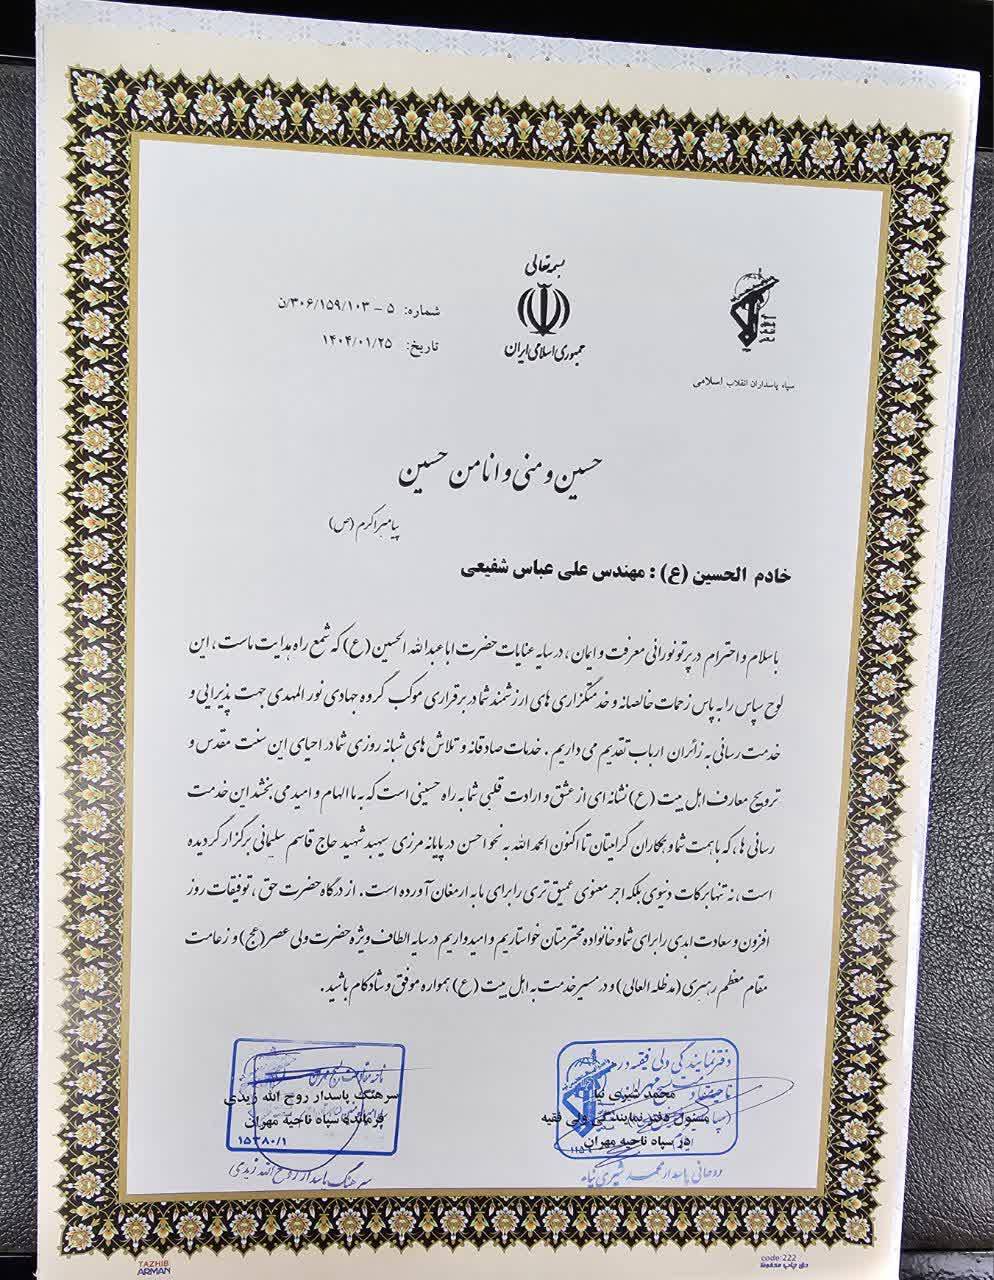 بسمه‌تعالی
جمهوری اسلامی ایران
سپاه پاسداران انقلاب اسلامی
شماره: ۵ - ۳۰۶/۱۵۹/۱۰۳/ن
تاریخ: ۱۴۰۴/۰۱/۲۵
حسین و منی و انا من حسین
پیامبر اکرم (ص)
خادم الحسین (ع) : مهندس علی عباس شفیعی
باسلام و احترام در پرتو نورانی معرفت و ایمان ، در سایه عنایات حضرت اباعبدالله الحسین (ع) که شمع راه هدایت ماست ، این
لوح سپاس را به پاس زحمات خالصانه و خدمتگزاری های ارزشمند شما در برقراری موکب گروه جهادی نور المهدی جهت پذیرایی و
خدمت رسانی به زائران ارباب تقدیم می داریم . خدمات صادقانه و تلاش های شبانه روزی شما در احیای این سنت مقدس و
ترویج معارف اهل بیت (ع) نشانه ای از عشق و ارادت قلبی شما به راه حسینی است که به ما الهام و امید می بخشد این خدمت
رسانی ها ، که با همت شما و همکاران گرامیتان تا اکنون الحمدالله به نحو احسن در پایانه مرزی سپهبد شهید حاج قاسم سلیمانی برگزار گردیده
است ، نه تنها برکات دنیوی بلکه اجر معنوی عمیق تری را برای ما به ارمغان آورده است . از درگاه حضرت حق ، توفیقات روز
افزون و سعادت ابدی را برای شما و خانواده محترمتان خواستاریم و امیدواریم در سایه الطاف ویژه حضرت ولی عصر (عج) و زعامت
مقام معظم رهبری (مدظله العالی) و در مسیر خدمت به اهل بیت (ع) همواره موفق و شادکام باشید .
دفتر نمایندگی ولی فقیه در
محمد شیری نیاء
مسئول دفتر نمایندگی ولی فقیه
در سپاه ناحیه مهران
روحانی پاسدار محمد شیری نیاء
سرهنگ پاسدار روح الله زیدی
فرمانده سپاه ناحیه مهران
۱۵۳۸۰/۱
سرهنگ پاسدار روح الله زیدی
TAZHIB
ARMAN
code:222
حق چاپ محفوظ